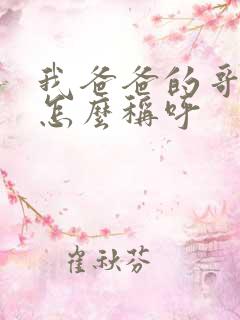 我爸爸的哥
怎麼稱呼
崔秋芬